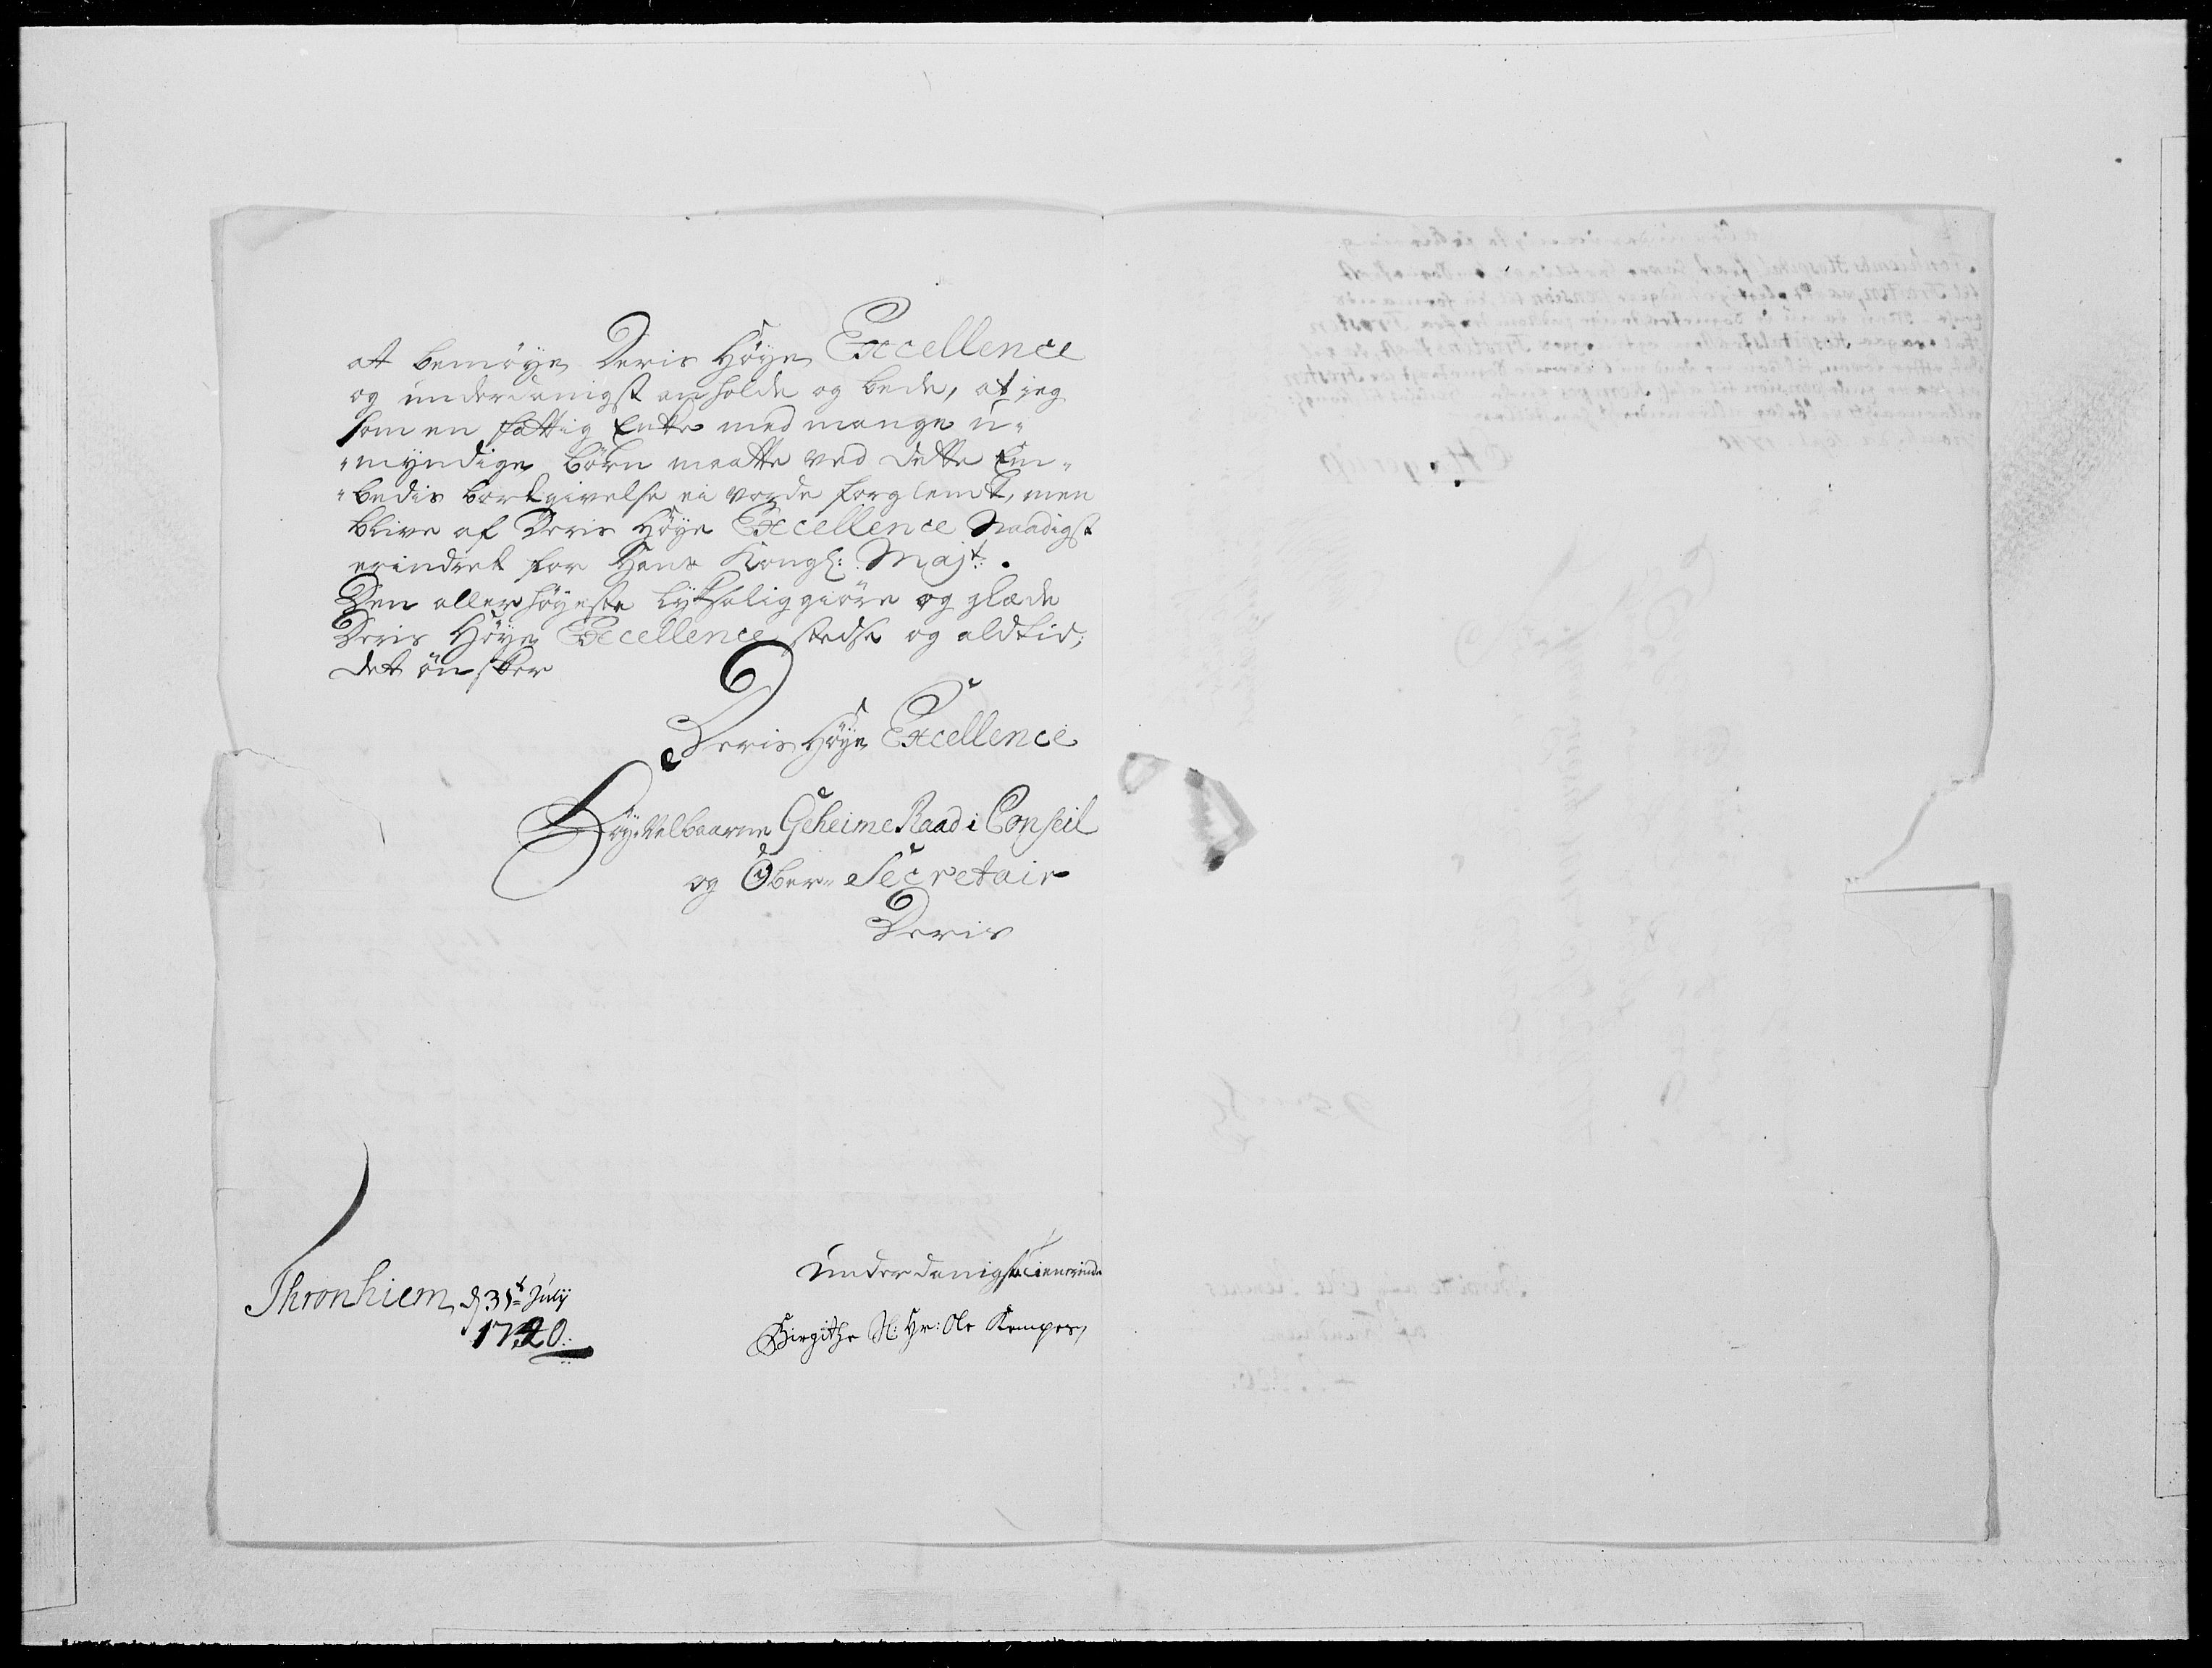 at bemøye Deris Høye Excellence
og underdanigst anholde og bede, at jeg
som en fattig Enke med mange u-
-myndige børn maatte ved dette Em-
-bedis bortgivelse ei vorde forglemt, men
blive af Deris Høye Excellence Naadigst
erindret for Hans Kongl: Majt:.
Den aller høyeste lyksaliggiøre og glæde
Deris Høye Excellence stedse og aldtid;
det ønsker
Deris Høye Excellence
Høy-Velbaarne Geheime Raad i Conseil
og Ober-Secretair
Deris
underdanigste tienerinde
Thronhiem, d 31t July
1740.
Birgithe Sl: Hr: Ole Kempes